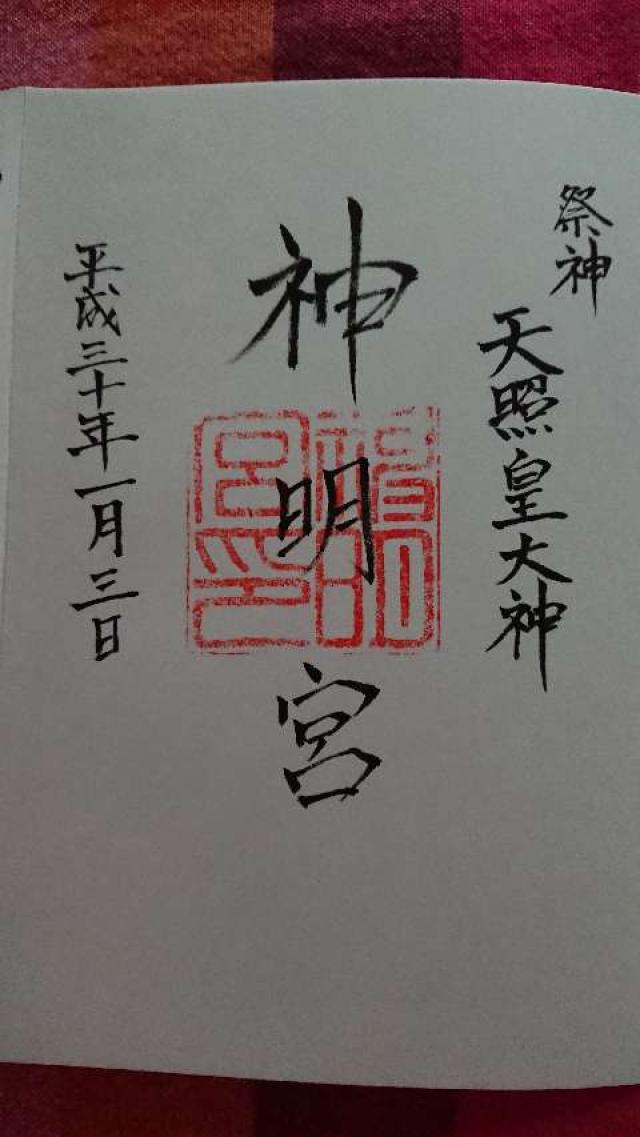 祭神
天照皇大神
神明宮
神明宮印
平成三十年一月三日